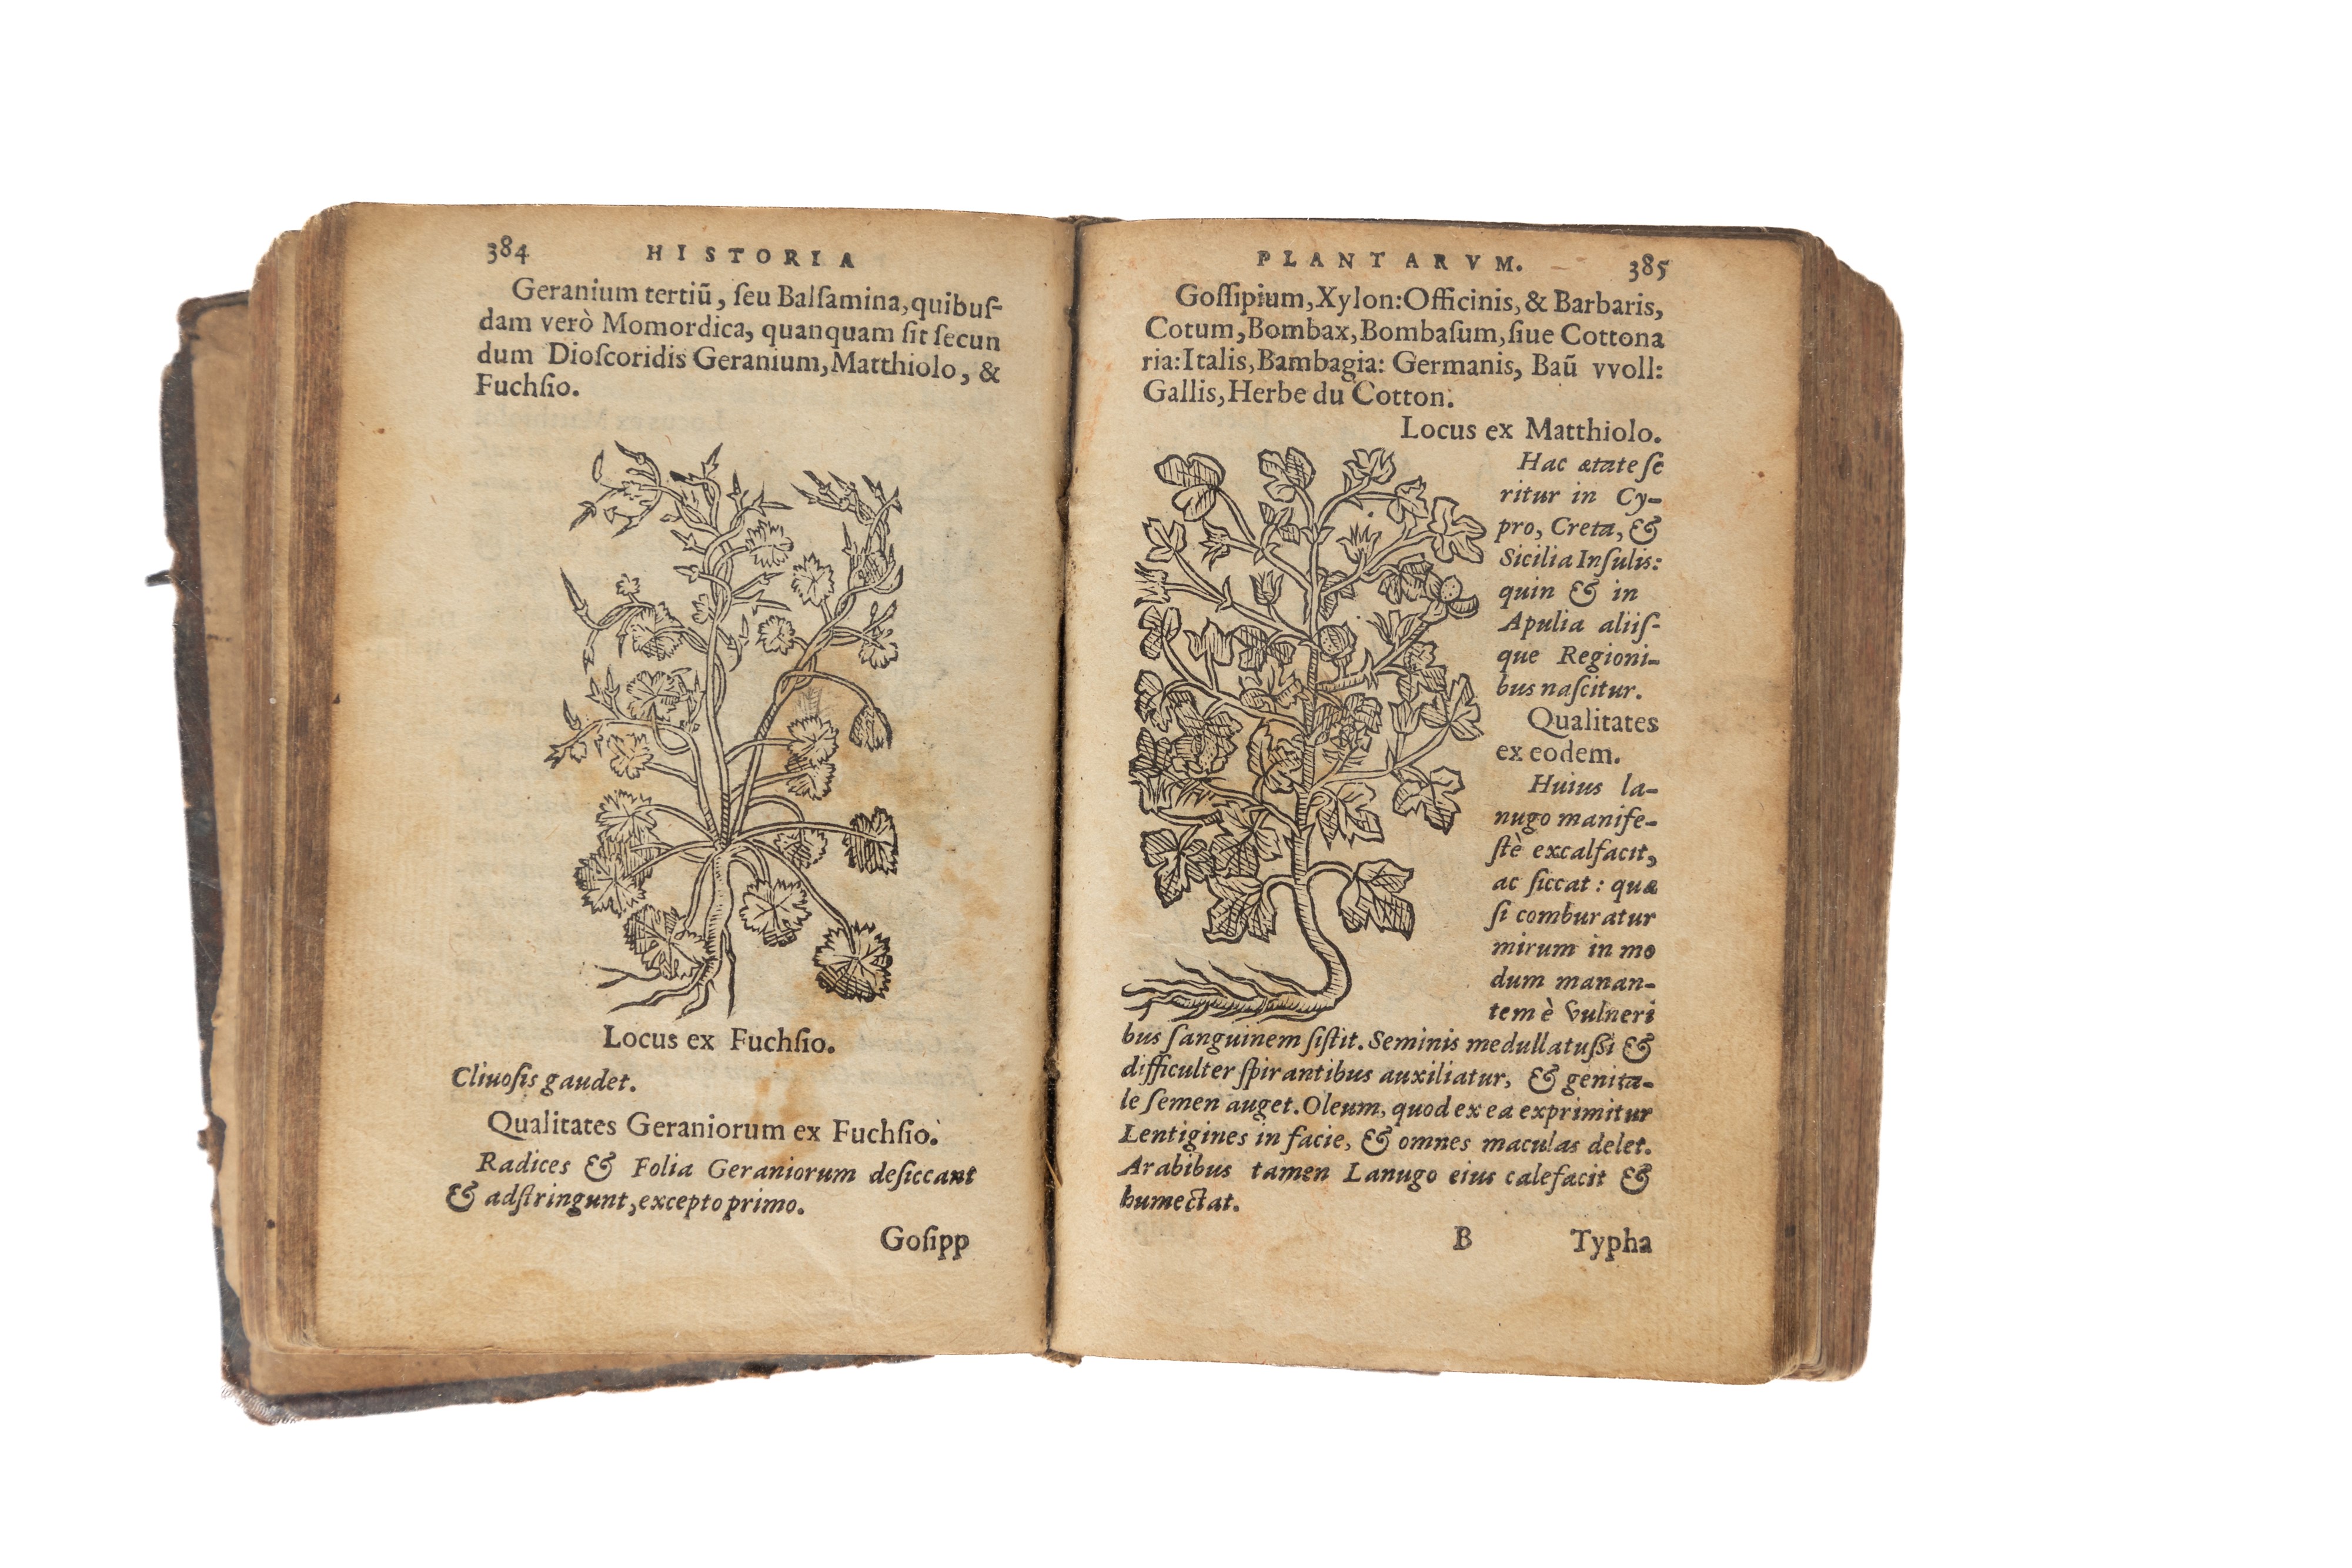 384 HISTORIA
Geranium tertiū, ſeu Balſamina, quibuſ-
dam verò Momordica, quanquam ſit ſecun
dum Dioſcoridis Geranium, Matthiolo, &
Fuchſio.
Locus ex Fuchſio.
Cliuoſis gaudet.
Qualitates Geraniorum ex Fuchſio.
Radices & Folia Geraniorum deſiccant
& adſtringunt, excepto primo.
Goſipp
PLANTARVM. 385
Goſſipium, Xylon: Officinis, & Barbaris,
Cotum, Bombax, Bombaſum, ſiue Cottona
ria: Italis, Bambagia: Germanis, Baū vvoll:
Gallis, Herbe du Cotton.
Locus ex Matthiolo.
Hac ætate ſe
ritur in Cy-
pro, Creta, &
Sicilia Inſulis:
quin & in
Apulia aliiſ-
que Regioni-
bus naſcitur.
Qualitates
ex eodem.
Huius la-
nugo manife-
ſtè excalfacit,
ac ſiccat: quæ
ſi comburatur
mirum in mo
dum manan-
tem è vulneri
bus ſanguinem ſiſtit. Seminis medulla tuſſi &
difficulter ſpirantibus auxiliatur, & genita-
le ſemen auget. Oleum, quod ex ea exprimitur
Lentigines in facie, & omnes maculas delet.
Arabibus tamen Lanugo eius calefacit &
humectat.
B Typha